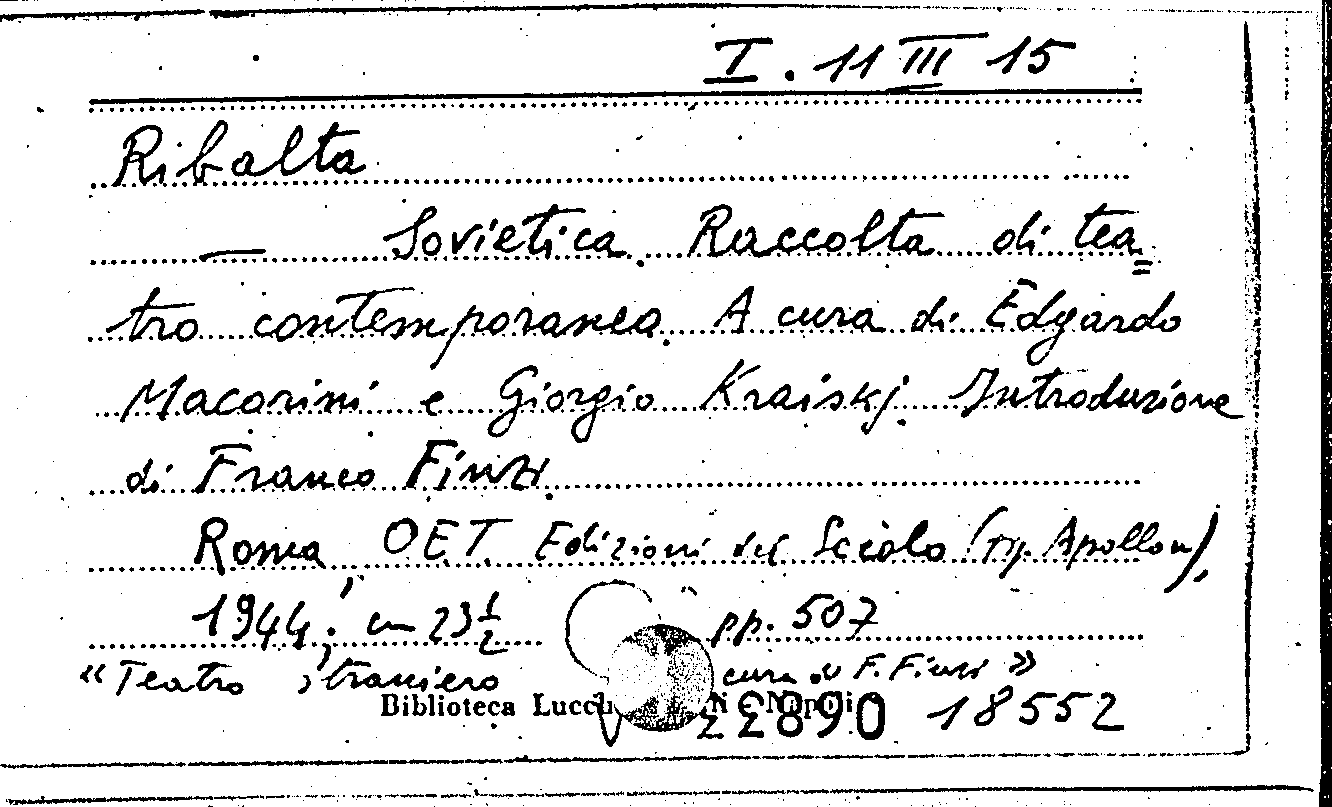 I. 11 III 15
Ribalta
— Sovietica. Raccolta di tea=
tro contemporaneo. A cura di Edgardo
Macorini e Giorgio Kraiskj. Introduzione
di Franco Finzi.
Roma, OET. Edizioni del Secolo (Tip. Apollon),
1944; cm 23 1/2 pp. 507
«Teatro straniero cura di F. Finzi»
Biblioteca Lucch N Napoli
22890 18552